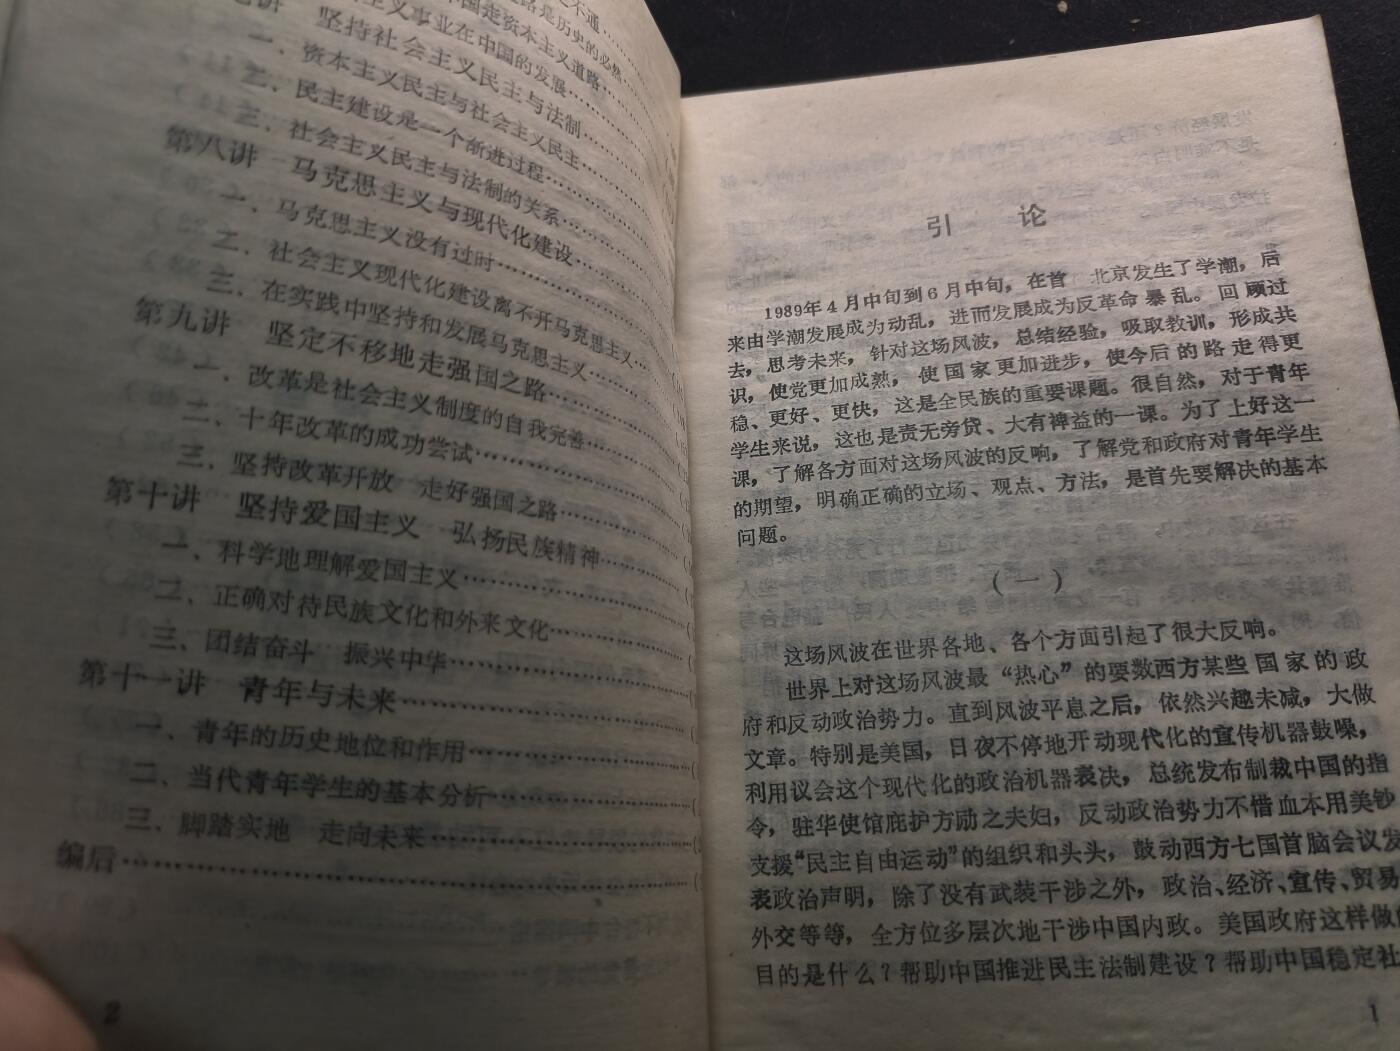 之不通……
道路是历史的必然
中国走资本主义道路
主义事业在中国的发展
讲 坚持社会主义民主与法制
一、资本主义民主与社会主义民主
二、民主建设是一个渐进过程
三、社会主义民主与法制的关系
第八讲 马克思主义与现代化建设
一、马克思主义没有过时
二、社会主义现代化建设离不开马克思主义
三、在实践中坚持和发展马克思主义
第九讲 坚定不移地走强国之路
一、改革是社会主义制度的自我完善
二、十年改革的成功尝试
三、坚持改革开放 走好强国之路
第十讲 坚持爱国主义 弘扬民族精神
一、科学地理解爱国主义
二、正确对待民族文化和外来文化
三、团结奋斗 振兴中华
第十一讲 青年与未来
一、青年的历史地位和作用
二、当代青年学生的基本分析
三、脚踏实地 走向未来
编后
2
引 论
1989年4月中旬到6月中旬，在首 北京发生了学潮，后
来由学潮发展成为动乱，进而发展成为反革命暴乱。回顾过
去，思考未来，针对这场风波，总结经验，吸取教训，形成共
识，使党更加成熟，使国家更加进步，使今后的路走得更
稳、更好、更快，这是全民族的重要课题。很自然，对于青年
学生来说，这也是责无旁贷、大有裨益的一课。为了上好这一
课，了解各方面对这场风波的反响，了解党和政府对青年学生
的期望，明确正确的立场、观点、方法，是首先要解决的基本
问题。
（一）
这场风波在世界各地、各个方面引起了很大反响。
世界上对这场风波最“热心”的要数西方某些国家的政
府和反动政治势力。直到风波平息之后，依然兴趣未减，大做
文章。特别是美国，日夜不停地开动现代化的宣传机器鼓噪，
利用议会这个现代化的政治机器表决，总统发布制裁中国的指
令，驻华使馆庇护方励之夫妇，反动政治势力不惜血本用美钞
支援“民主自由运动”的组织和头头，鼓动西方七国首脑会议发
表政治声明，除了没有武装干涉之外，政治、经济、宣传、贸易
外交等等，全方位多层次地干涉中国内政。美国政府这样做的
目的是什么？帮助中国推进民主法制建设？帮助中国稳定社
1